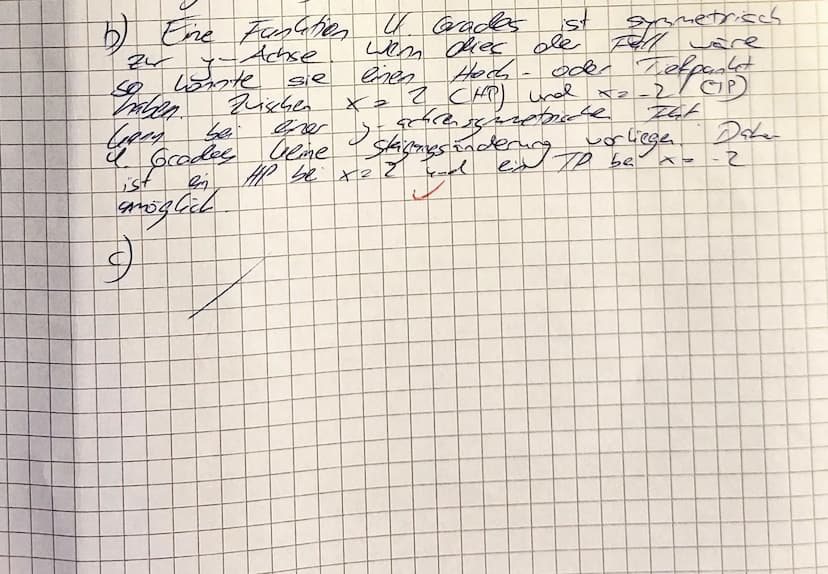 b) Eine Funktion 4. Grades ist symmetrisch
zur y-Achse. Wenn dies der Fall wäre
so könnte sie einen Hoch- oder Tiefpunkt
haben. Zwischen x = 2 (HP) und x = -2 (TP)
kann bei einer y-achsensymmetrischen Fkt
4. Grades keine Steigungsänderung vorliegen. Daher
ist ein HP bei x = 2 und ein TP bei x = -2
unmöglich.
c)